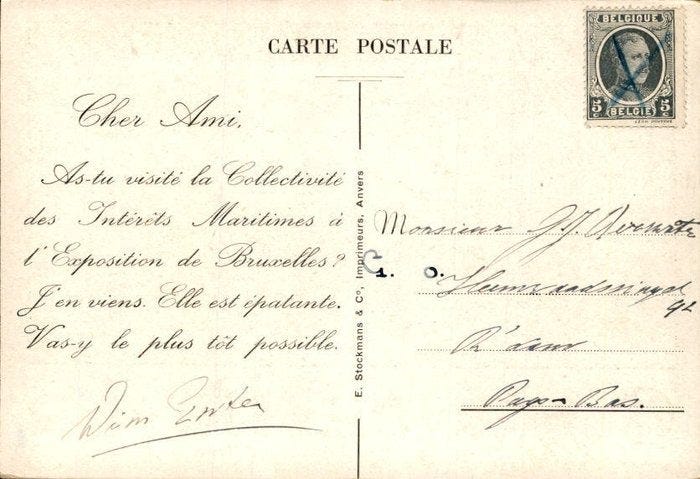 CARTE POSTALE
BELGIQUE
5 C 5 C
BELGIË
Cher Ami,
As-tu visité la Collectivité
des Intérêts Maritimes à
l'Exposition de Bruxelles?
J'en viens. Elle est épatante.
Vas-y le plus tôt possible.
Wim
E. Stockmans & Co, Imprimeurs, Anvers
Monsieur
1. O.
92
R'dam
Pays-Bas.